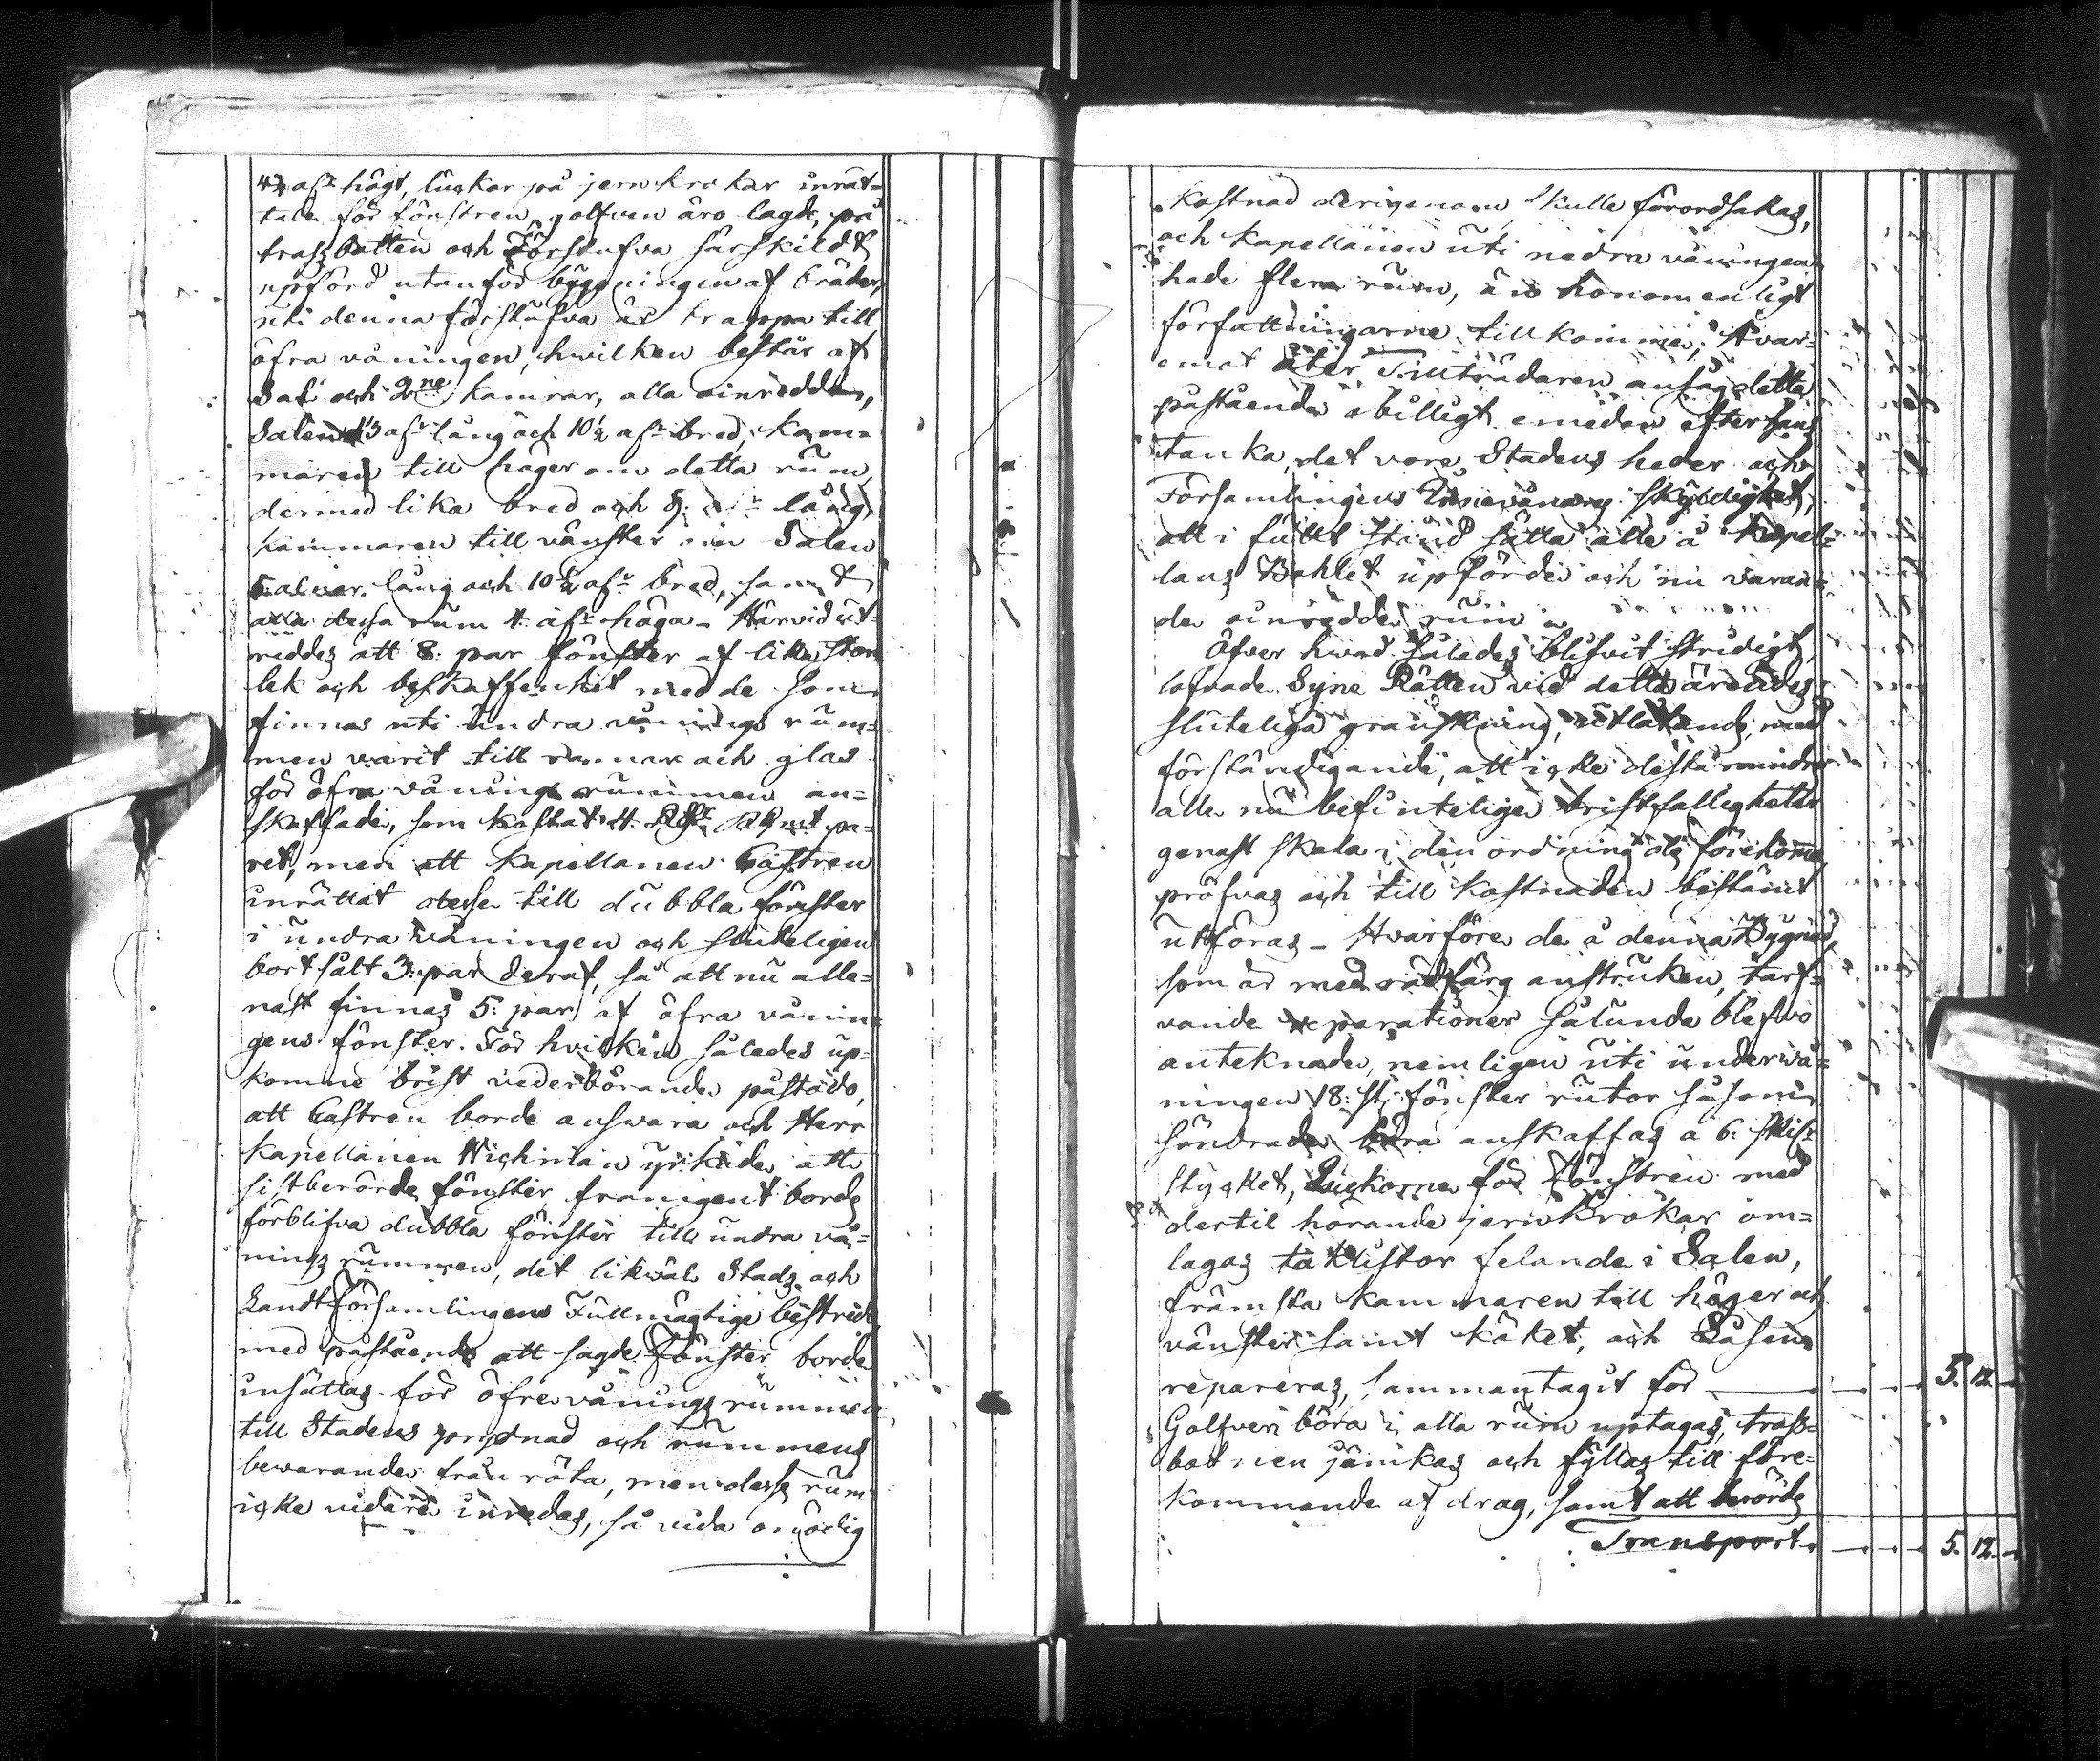 4½ alr högt, luckor på jernkrokar inrät=
tade för fönstren, golfven äro lagde på
trassbotten och Förstufva särskildt
upförd utanför byggningen af bräder,
uti denna förstufva är trappa till
öfra våningen, hwilken består af
Sal och 2ne kamrar, alla oinredda,
Salen 13 alr lång och 10½ alr bred, kam=
maren till höger om detta rum
dermed lika bred och 9: alr lång,
kammaren till vänster om Salen
5. alnar lång och 10½ alr bred, samt
alla dessa rum 4. alr höga. Härvid ut=
reddes att 8: par fönster af lika stor=
lek och beskaffenhet med de som
finnas uti undra vånings rum=
men varit till ramar och glas
för öfra vånings rummen an=
skaffade, som kostat 4. Rdr Rgt pa=
ret, men att kapellanen Castren
inrättat desse till dubbla fönster
i undra våningen och sluteligen
bortsålt 3: par deraf, så att nu alle=
nast finnas 5: par af öfra vånin=
gens fönster. För hvilken således up=
komne brist vederbörande påstodo,
att Castren borde answara och Herr
Kapellanen Wichman yrkade att
sistberörde fönster framgent borde
förblifva dubbla fönster till undra vå=
nings rummen, det likwäl Stads och
Landtförsamlingens Fullmägtige bestredo,
med påstående att sagde Fönster borde
insättas för öfre vånings rummen
till Stadens prydnad och rummens
bewarande från röta, men desse rum
icke vidare inredas, så vida onödig
kostnad derigenom skulle förordsakas,
och kapellanen uti nedra våningen
hade flera rum, än honom enligt
författningarne tillkomme; Hvar=
emot åter Tillträdaren ansåg detta
påstående obilligt emedan efter hans
tanka det vore Stadens heder och
Församlingens Innevånares skyldighet,
att i fullt stånd sätta alle å Kapel=
lans Bohlet upförde och nu varan=
de oinredde rum
Öfver hwad således blifvit stridigt,
lofvade Syne Rätten vid detta ärendes
sluteliga granskning, utlåtande, med
förständigande, att icke desto mindre
alle nu befinteliga bristfälligheter
genast skola i den ordning de förekomma
pröfvas och till kostnaden bestämt
utföras - Hvarföre de å denna Bygnad,
som är med rödfärg anstruken, tarf=
vande reparationer sålunda blefvo
anteknade, nemligen uti underwå=
ningen 18: st. fönster rutor såsom
söndrade böra anskaffas a 6. skis
stycket, Luckorne för Fönstren med
dertil hörande jernkrokar om=
lagas taklistor felande i Salen,
främsta kammaren till höger och
vänster samt köket, och Låsen
repareras, sammantagit för 5. 12.
Golfven böra i alla rum uptagas, trass=
botnen jämkas och fyllas till före=
kommande af drag, samt att berörde
Transport 5. 12.